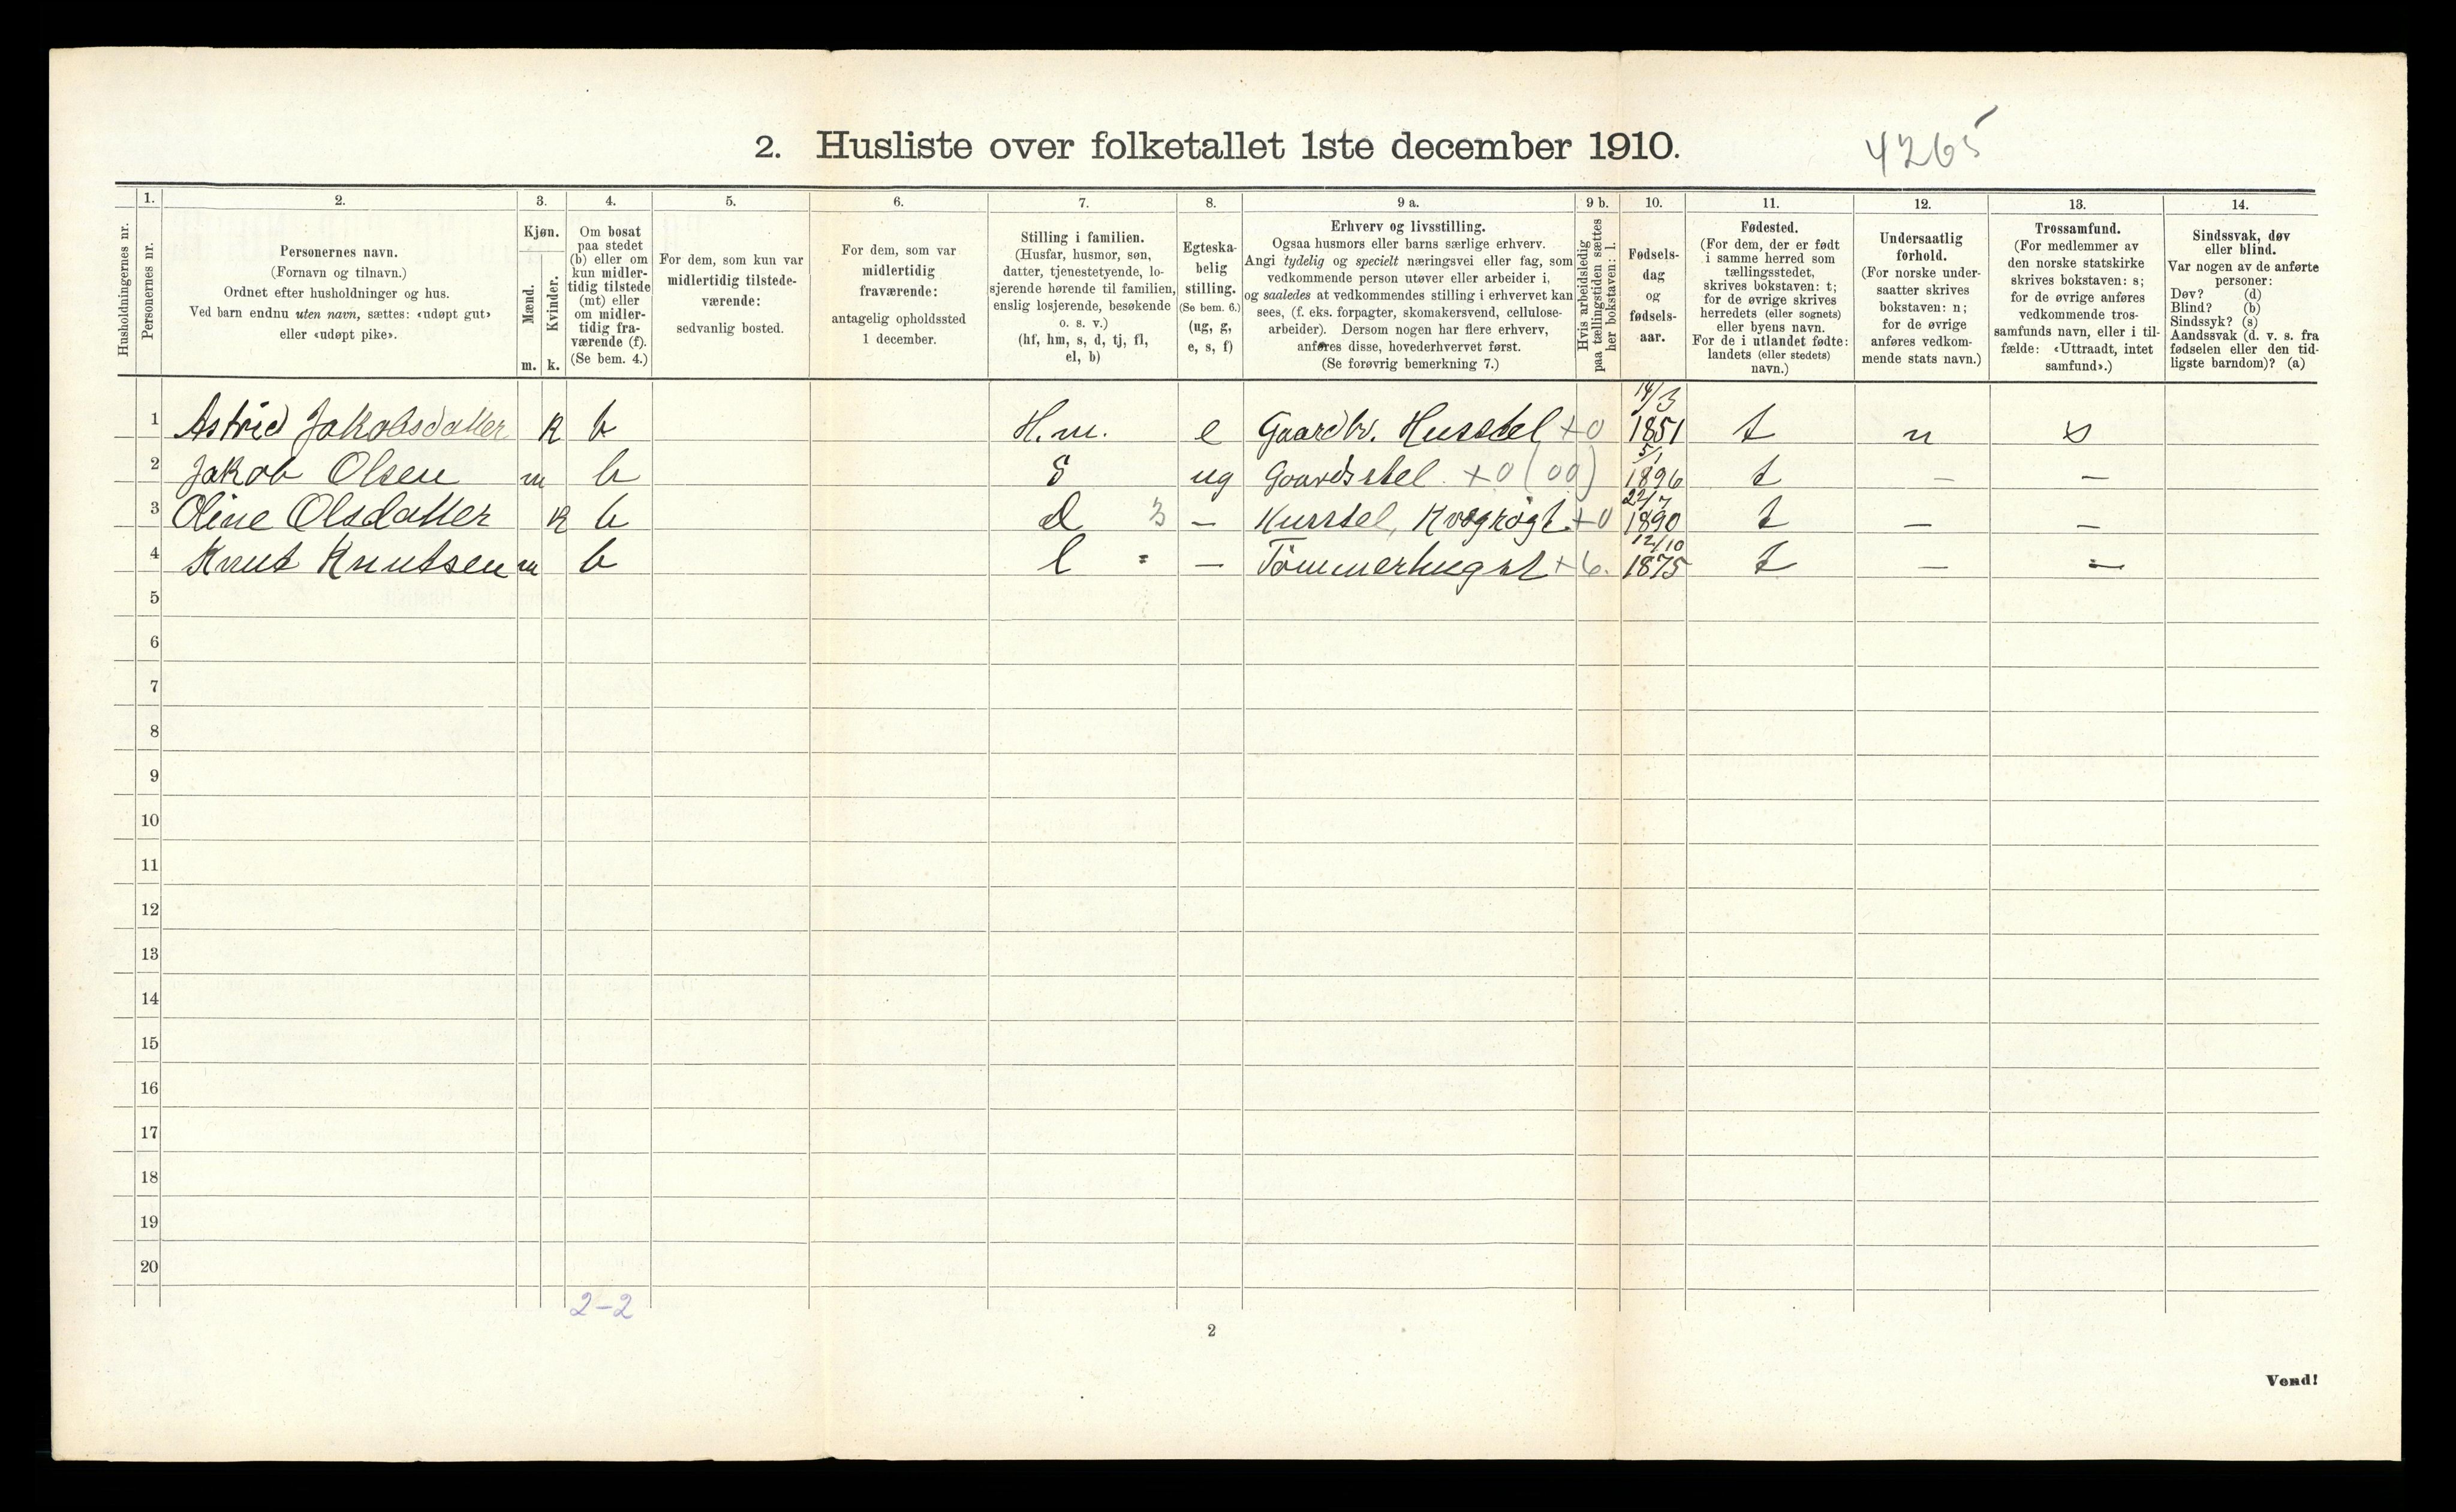 2. Husliste over folketallet 1ste december 1910.
4265
Husholdningernes nr.
1.
Personernes nr.
2.
Personernes navn.
(Fornavn og tilnavn.)
Ordnet efter husholdninger og hus.
Ved barn endnu uten navn, sættes: «udøpt gut»
eller «udøpt pike».
3.
Kjøn.
Mænd.
Kvinder.
m. k.
4.
Om bosat
paa stedet
(b) eller om
kun midler-
tidig tilstede
(mt) eller
om midler-
tidig fra-
værende (f).
(Se bem. 4.)
5.
For dem, som kun var
midlertidig tilstede-
værende:
sedvanlig bosted.
6.
For dem, som var
midlertidig
fraværende:
antagelig opholdssted
1 december.
7.
Stilling i familien.
(Husfar, husmor, søn,
datter, tjenestetyende, lo-
sjerende hørende til familien,
enslig losjerende, besøkende
o. s. v.)
(hf, hm, s, d, tj, fl,
el, b)
8.
Egteska-
belig
stilling.
(Se bem. 6.)
(ug, g,
e, s, f)
9 a.
Erhverv og livsstilling.
Ogsaa husmors eller barns særlige erhverv.
Angi tydelig og specielt næringsvei eller fag, som
vedkommende person utøver eller arbeider i,
og saaledes at vedkommendes stilling i erhvervet kan
sees, (f. eks. forpagter, skomakersvend, cellulose-
arbeider). Dersom nogen har flere erhverv,
anføres disse, hovederhvervet først.
(Se forøvrig bemerkning 7.)
9 b.
Hvis arbeidsledig
paa tællingstiden sættes
her bokstaven: l.
10.
Fødsels-
dag
og
fødsels-
aar.
11.
Fødested.
(For dem, der er født
i samme herred som
tællingsstedet,
skrives bokstaven: t;
for de øvrige skrives
herredets (eller sognets)
eller byens navn.
For de i utlandet fødte:
landets (eller stedets)
navn.)
12.
Undersaatlig
forhold.
(For norske under-
saatter skrives
bokstaven: n;
for de øvrige
anføres vedkom-
mende stats navn.)
13.
Trossamfund.
(For medlemmer av
den norske statskirke
skrives bokstaven: s;
for de øvrige anføres
vedkommende tros-
samfunds navn, eller i til-
fælde: «Uttraadt, intet
samfund».)
14.
Sindssvak, døv
eller blind.
Var nogen av de anførte
personer:
Døv? (d)
Blind? (b)
Sindssyk? (s)
Aandssvak (d. v. s. fra
fødselen eller den tid-
ligste barndom)? (a)
1 Astrid Jakobsdatter k b H.m. e Gaardbr. Husstel +0 14/3 1851 t n s
2 Jakob Olsen m b S ug Gaardsstel +0 (00) 5/1 1896 t — —
3 Oline Olsdatter k b d 3 — Husstel, Kvægrøgt +0 22/7 1890 t — —
4 Knut Knutsen m b l = — Tømmerhugst +6. 12/10 1875 t — —
5
6
7
8
9
10
11
12
13
14
15
16
17
18
19
20
2-2
2
Vend!